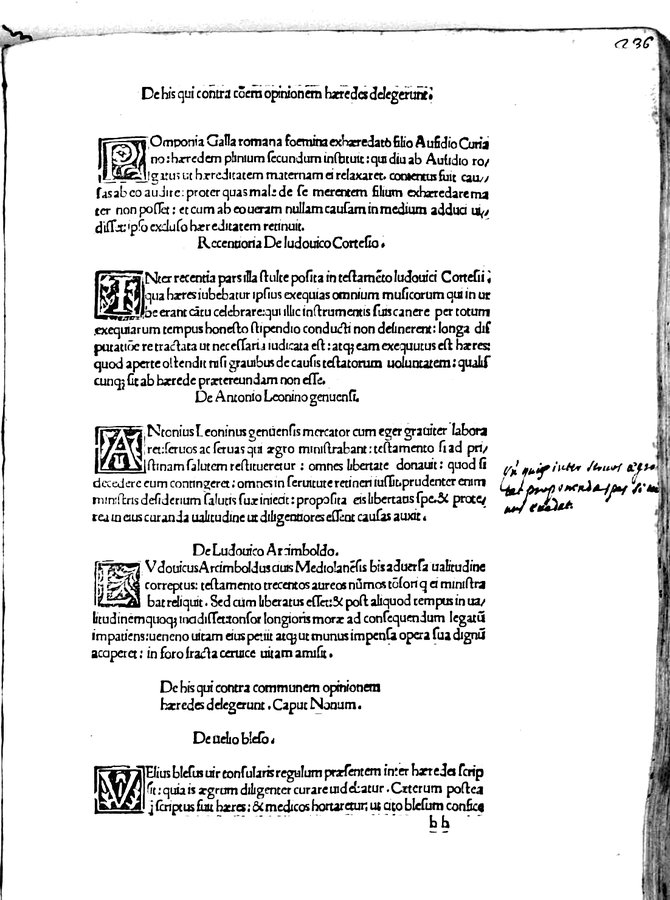 236
De his qui contra cōem opinionem hæredes delegerunt.
POmponia Galla romana foemina exhæredato filio Aufidio Curia
no: hæredem plinium secundum instituit: qui diu ab Aufidio ro/
gatus ut hæreditatem maternam ei relaxaret. contentus fuit cau//
sas ab eo audire: propter quas male de se merentem filium exhæredare ma
ter non posset: et cum ab eo ueram nullam causam in medium adduci ui//
disset: ipso excluso hæreditatem retinuit.
Recentiora De ludouico Cortesio.
INter recentia pars illa stulte posita in testamēto ludouici Cortesii:
qua hæres iubebatur ipsius exequias omnium musicorum qui in ur
be erant cātu celebrare: qui illic instrumentis suis canere per totum
exequiarum tempus honesto stipendio conducti non desinerent: longa dis
putatiōe retractata ut necessaria iudicata est: atq; eam exequutus est hæres:
quod aperte ostendit nisi grauibus de causis testatorum uoluntatem: qualis
cunq; sit ab hærede prætereundam non esse.
De Antonio Leonino genuensi.
ANtonius Leoninus genuensis mercator cum eger grauiter labora
ret: seruos ac seruas qui ægro ministrabant: testamento si ad pri/
stinam salutem restitueretur: omnes libertate donauit: quod si
decedere eum contingeret: omnes in seruitute retineri iussit. prudenter enim
ministris desiderium salutis suæ iniecit: proposita eis libertatis spe. & prote/
rea in eius curanda ualitudine ut diligentiores essent causas auxit.
De Ludouico Arcimboldo.
LVdouicus Arcimboldus ciuis Mediolanēsis bis aduersa ualitudine
correptus: testamento trecentos aureos nūmos tōsori q ei ministra
bat reliquit. Sed cum liberatus esset: & post aliquod tempus in ua/
litudinem quoq; incidisset: tonsor longioris moræ ad consequendum legatū
impatiens: ueneno uitam eius petiit atq; ut munus impensa opera sua dignū
acciperet: in foro fracta ceruice uitam amisit.
De his qui contra communem opinionem
hæredes delegerunt. Caput Nonum.
De uelio bleso.
VElius blesus uir consularis regulum præsentem inter hæredes scrip
sit: quia is ægrum diligenter curare uidebatur. Cæterum postea
scriptus fuit hæres: & medicos hortaretur, ut cito blesum confice
b b
inter seruos ægro
proponenda spes si